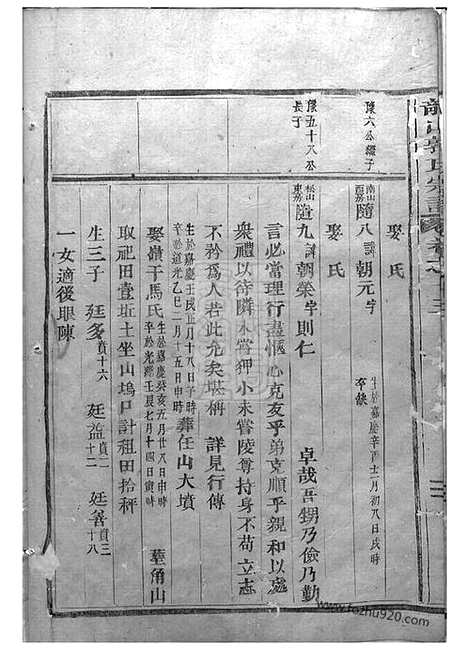 陳六公繼子
南山西房 隨八 諱朝元 字 生於嘉慶辛酉十一月初八日戌時 卒缺
娶氏
陳五十八公長子
松山東房 隨九 諱朝榮 字則仁 卓哉吾甥乃儉乃勤
娶氏
言必當理行盡愜心克友乎弟克順乎親和以處
衆禮以待隣未嘗狎小未嘗陵尊持身不苟立志
不矜爲人若此允矣堪稱 詳見行傳
生於嘉慶壬戌五月十八日子時 卒於道光乙巳二月十五日申時 葬任山大墳
娶嶺干馬氏 生於嘉慶癸亥五月廿八日申時 卒於光緒壬辰七月十四日寅時 葬角山
取祀田壹坵土坐山塢戸計租田拾秤
生三子 廷多 賁十六 廷益 賁二十二 廷善 賁三十八
一女適後眼陳
www.fozhu920.com